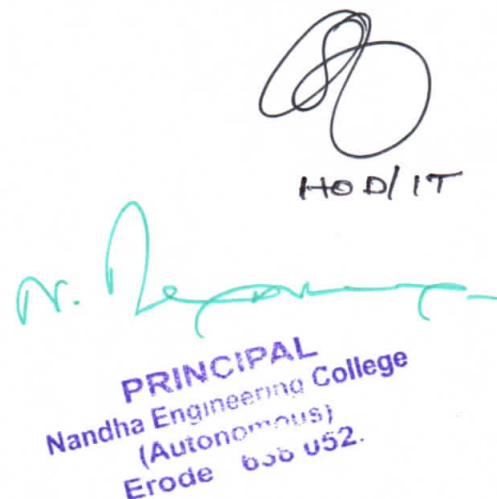 HOD/IT
N.
PRINCIPAL
Nandha Engineering College
(Autonomous)
Erode 638 052.